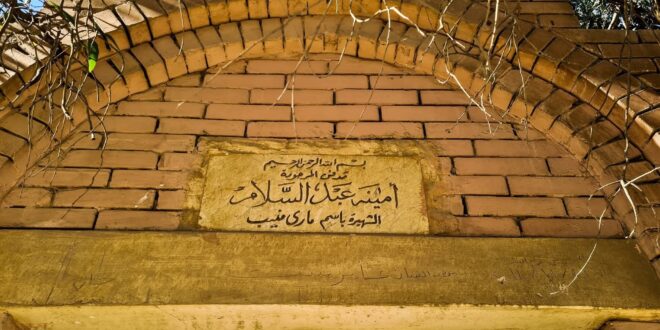 بسم الله الرحمن الرحيم
مدفن المرحومة
أمينه عبد السَّلام
الشهيرة باسم مارى منيب